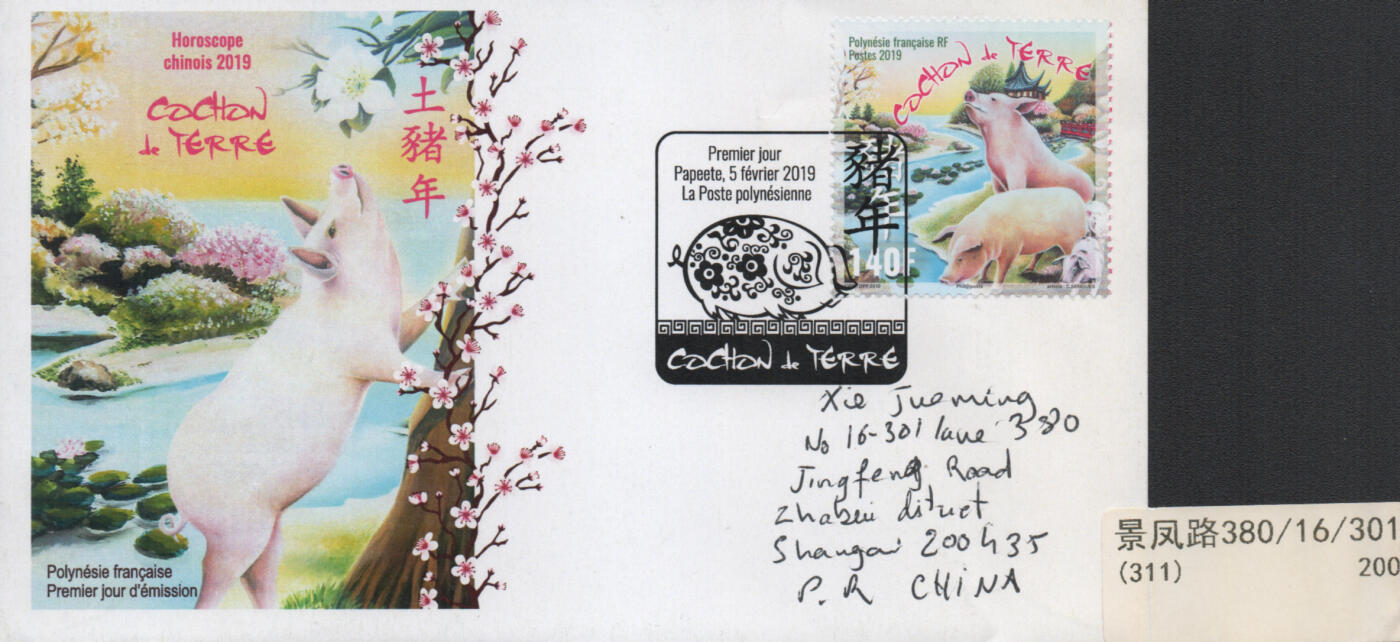 Horoscope
chinois 2019
COCHON
de TERRE
土
豬
年
Polynésie française
Premier jour d'émission
Polynésie française RF
Postes 2019
COCHON de TERRE
140F
Premier jour
Papeete, 5 février 2019
La Poste polynésienne
豬
年
COCHON de TERRE
Xie Jueming
No 16-301 lane 380
Jingfeng Road
Zhabei ditrict
Shangai 200435
P.R CHINA
景凤路380/16/301
(311) 200